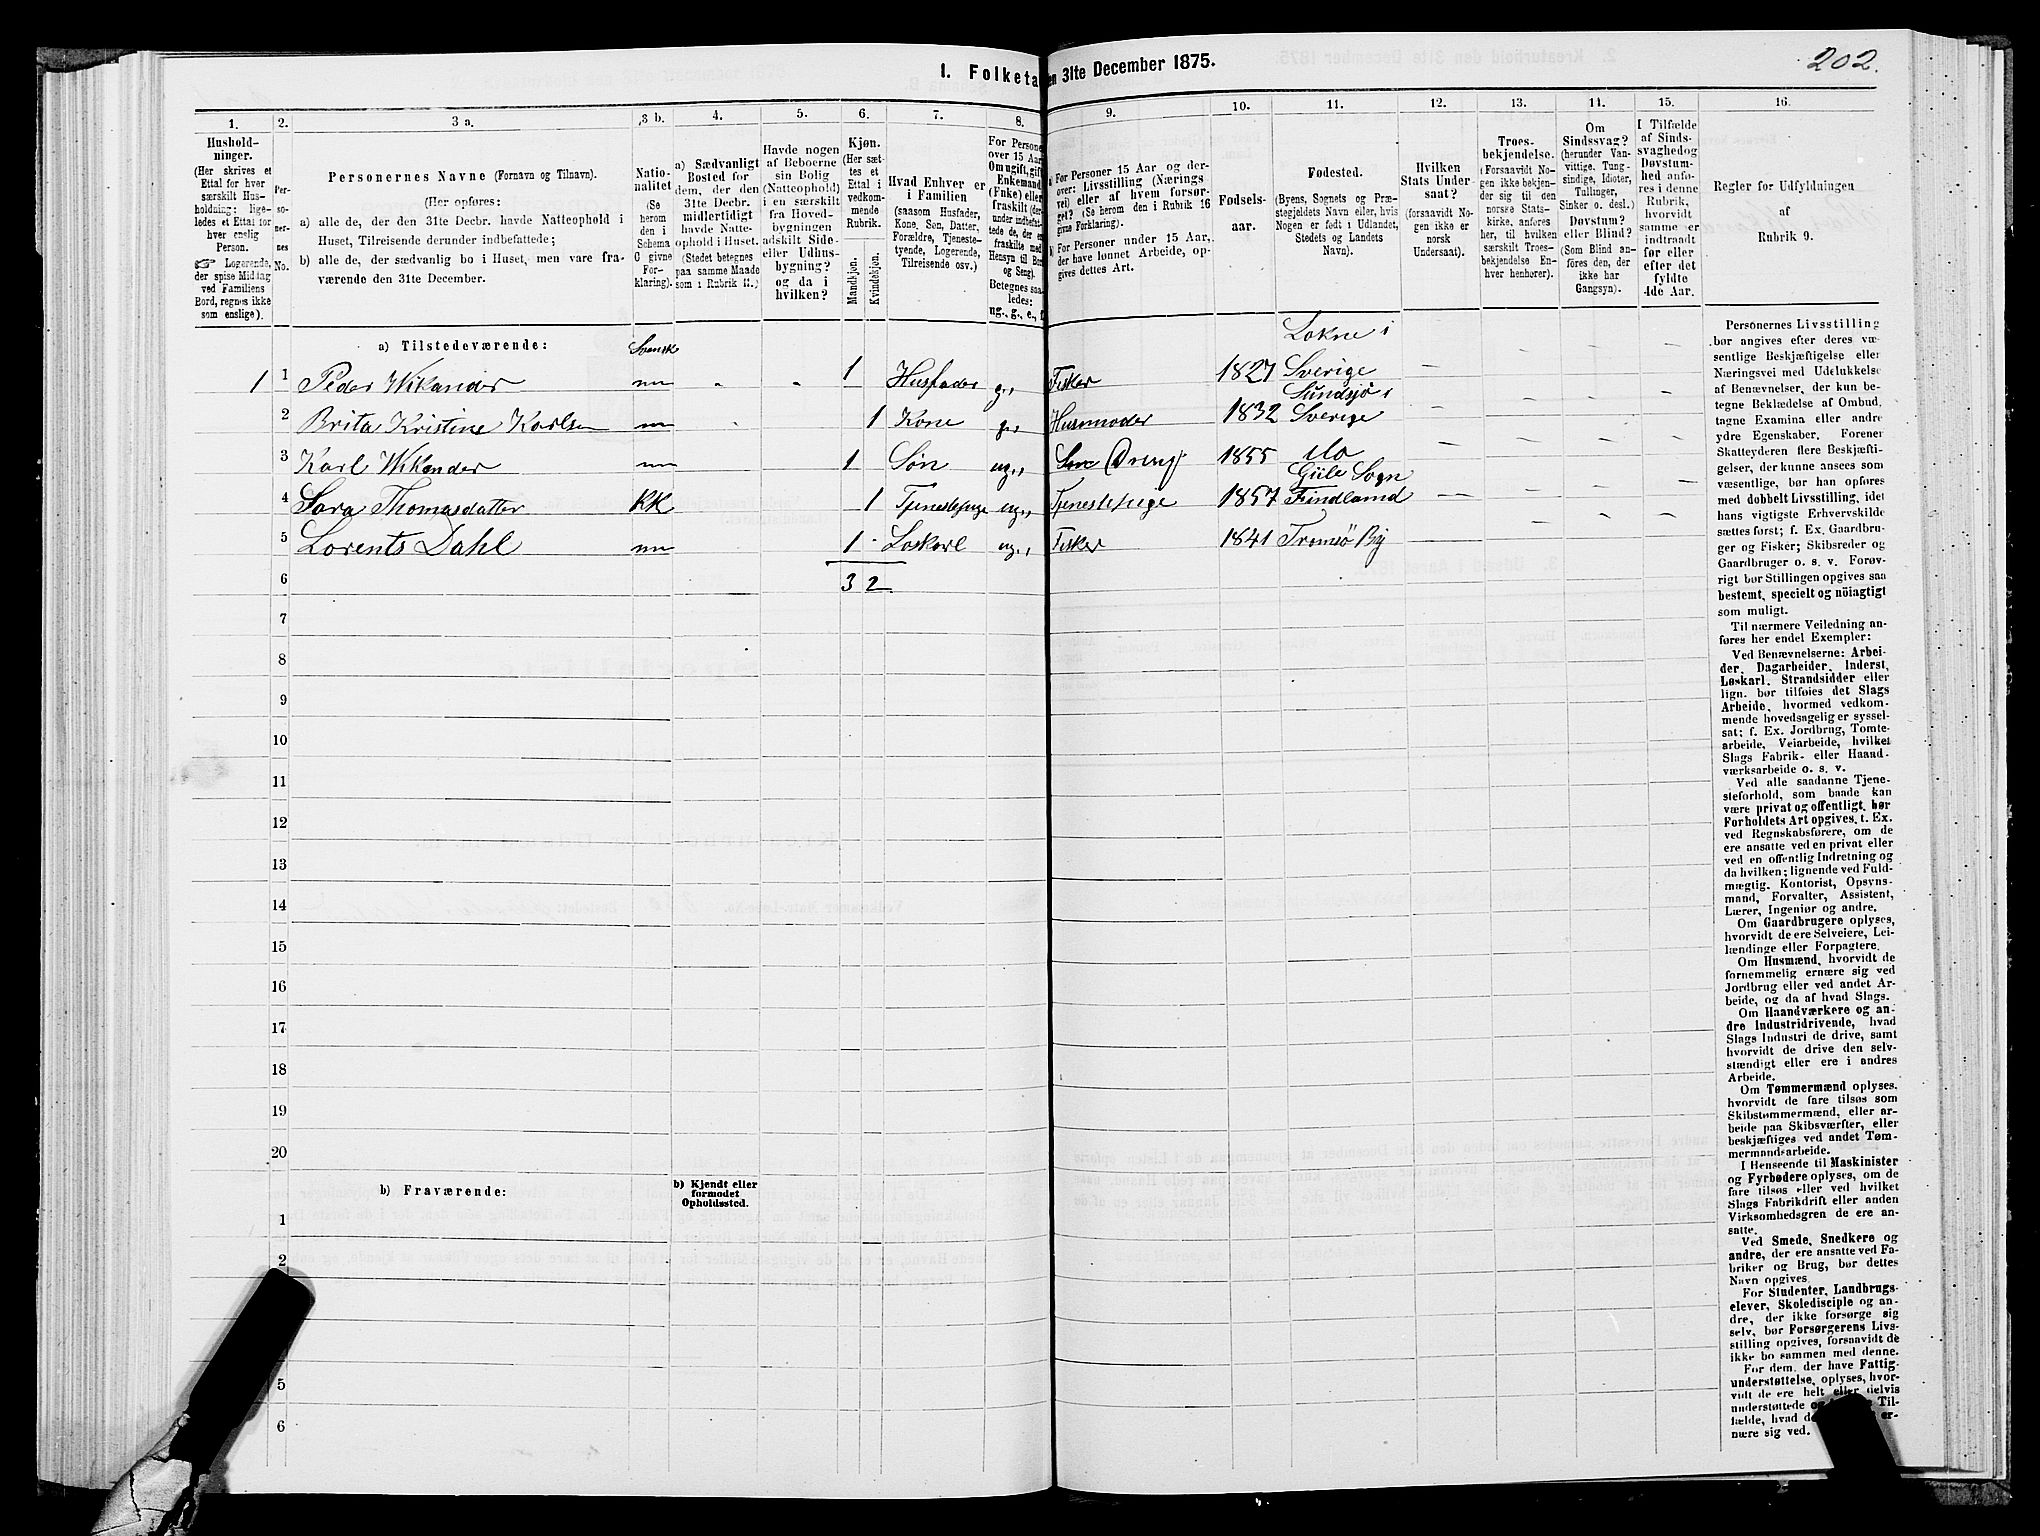 I. Folketa
en 31te December 1875.
202.
1.
2.
3 a.
3 b.
4.
5.
6.
7.
8.
9.
10.
11.
12.
13.
14.
15.
16.
Hushold-
ninger.
(Her skrives et
Ettal for hver
særskilt Hus-
holdning; lige-
ledes et Ettal for
hver enslig
Person.
☞ Logerende,
der spise Middag
ved Familiens
Bord, regnes ikke
som enslige).
Per-
so-
ner-
nes
No.
Personernes Navne (Fornavn og Tilnavn).
(Her opføres:
a) alle de, der den 31te Decbr. havde Natteophold i
Huset, Tilreisende derunder indbefattede;
b) alle de, der sædvanlig bo i Huset, men vare fra-
værende den 31te December.
Natio-
nalitet
(Se
herom
den i
Schema
C givne
For-
klaring).
a) Sædvanligt
Bosted for
dem, der den
31te Decbr.
midlertidigt
havde Natte-
ophold i Huset.
(Stedet betegnes
paa samme Maade
som i Rubrik 11.)
Havde nogen
af Beboerne
sin Bolig
(Natteophold)
i en særskilt
fra Hoved-
bygningen
adskilt Side-
eller Udhus-
bygning?
og da i
hvilken?
Kjøn.
(Her sæt-
tes et
Ettal i
vedkom-
mende
Rubrik.
Mandkjøn.
Kvindekjøn.
Hvad Enhver er
i Familien
(saasom Husfader,
Kone, Søn, Datter,
Forældre, Tjeneste-
tyende, Logerende,
Tilreisende osv.)
For Persone
over 15 Aar
Om ugift, gift
Enkemand
(Enke) eller
fraskilt (der-
under indbefat-
tede de, der er
fraskilte med
Hensyn til Bor
og Seng).
Betegnes saa-
ledes:
ug., g., e., f.
a) For Personer 15 Aar og der-
over: Livsstilling (Nærings
vei) eller af hvem forsør-
get? (Se herom den i Rubrik 16
givne Forklaring).
b) For Personer under 15 Aar,
der have lønnet Arbeide, op-
gives dettes Art.
Fødsels-
aar.
Fødested.
(Byens, Sognets og Præ-
stegjeldets Navn eller, hvis
Nogen er født i Udlandet,
Stedets og Landets
Navn).
Hvilken
Stats Under-
saat?
(forsaavidt No-
gen ikke er
norsk
Undersaat).
Troes-
bekjendelse.
(Forsaavidt No-
gen ikke bekjen-
der sig til den
norske Stats-
kirke, anføres
her, til hvilken
særskilt Troes-
bekjendelse En-
hver henhører).
Om
Sindssvag?
(herunder Van-
vittige, Tung-
sindige, Idioter,
Tullinger,
Sinker o. desl.)
Døvstum?
eller Blind?
(Som Blind an-
føres den, der
ikke har
Gangsyn).
I Tilfælde
af Sinds-
svaghed og
Døvstum-
hed anfø-
res i denne
Rubrik,
hvorvidt
samme er
indtraadt
før eller
efter det
fyldte
4de Aar.
Regler for Udfyldningen
af
Rubrik 9.
a) Tilstedeværende:
Svensk
Lokne i
1 1 Peder Wikander nn 1 Husfader g., Fisker 1827 Sverige
Sundsjø i
2 Brita Kristine Karlsen nn 1 Kone g., Husmoder 1832 Sverige
3 Karl Wikander nn 1 Søn ug., Søn (Dreng) 1855 do
Güle Sogn
4 Sara Thomasdatter KK 1 Tjenestepige ug., Tjenestepige 1857 Findland
5 Lorents Dahl nn 1 Loskarl ug., Fisker 1841 Tromsö By
6 3 2
7
8
9
10
11
12
13
14
15
16
17
18
19
20
b) Fraværende:
b) Kjendt eller
formodet
Opholdssted.
1
2
5
6
Personernes Livsstilling
bør angives efter deres væ-
sentlige Beskjæftigelse eller
Næringsvei med Udelukkelse
af Benævnelser, der kun be-
tegne Beklædelse af Ombud,
tagne Examina eller andre
ydre Egenskaber. Forener
Skatteyderen flere Beskjæfti-
gelser, der kunne ansees som
væsentlige, bør han opføres
med dobbelt Livsstilling, idet
hans vigtigste Erhvervskilde
sættes først; f. Ex. Gaardbru-
ger og Fisker; Skibsreder og
Gaardbruger o. s. v. Forøv-
rigt bør Stillingen opgives saa
bestemt, specielt og nöiagtigt
som muligt.
Til nærmere Veiledning an-
føres her endel Exempler:
Ved Benævnelserne: Arbei-
der, Dagarbeider, Inderst,
Løskarl, Strandsidder eller
lign. bør tilføies det Slags
Arbeide, hvormed vedkom-
mende hovedsagelig er syssel-
sat; f. Ex. Jordbrug, Tomte-
arbeide, Veiarbeide, hvilket
Slags Fabrik- eller Haand-
værksarbeide o. s. v.
Ved alle saadanne Tjene-
steforhold, som baade kan
være privat og offentligt, bør
Forholdets Art opgives, f. Ex.
ved Regnskabsførere, om de
ere ansatte ved en privat eller
ved en offentlig Indretning og
da hvilken; lignende ved Fuld-
mægtig, Kontorist, Opsyns-
mand, Forvalter, Assistent,
Lærer, Ingeniør og andre.
Om Gaardbrugere oplyses,
hvorvidt de ere Selveiere, Lei-
lændinge eller Forpagtere.
Om Husmænd, hvorvidt de
fornemmelig ernære sig ved
Jordbrug eller ved andet Ar-
beide, og da af hvad Slags.
Om Haandværkere og an-
dre Industridrivende, hvad
Slags Industri de drive, samt
hvorvidt de drive den selv-
stændigt eller ere i andres
Arbeide.
Om Tømmermænd oplyses,
hvorvidt de fare tilsøs som
Skibstømmermænd, eller ar-
beide paa Skibsværfter, eller
beskjæftiges ved andet Tøm-
mermandsarbeide.
I Henseende til Maskinister
og Fyrbødere oplyses, om de
fare tilsøs eller ved hvilket
Slags Fabrikdrift eller anden
Virksomhedsgren de ere an-
satte.
Ved Smede, Snedkere og
andre, der ere ansatte ved Fa-
briker og Brug, bør dettes
Navn opgives.
For Studenter, Landbrugs-
elever, Skoledisciple og an-
dre, der ikke forsørge sig
selv, bør Forsørgerens Livs-
stilling opgives, forsaavidt de
ikke bo sammen med denne.
For dem, der have Fattig-
understøttelse, oplyses, hvor-
vidt de ere helt eller delvis
understøttede og Til-
fælde, hvad d er-
nære sig ved.